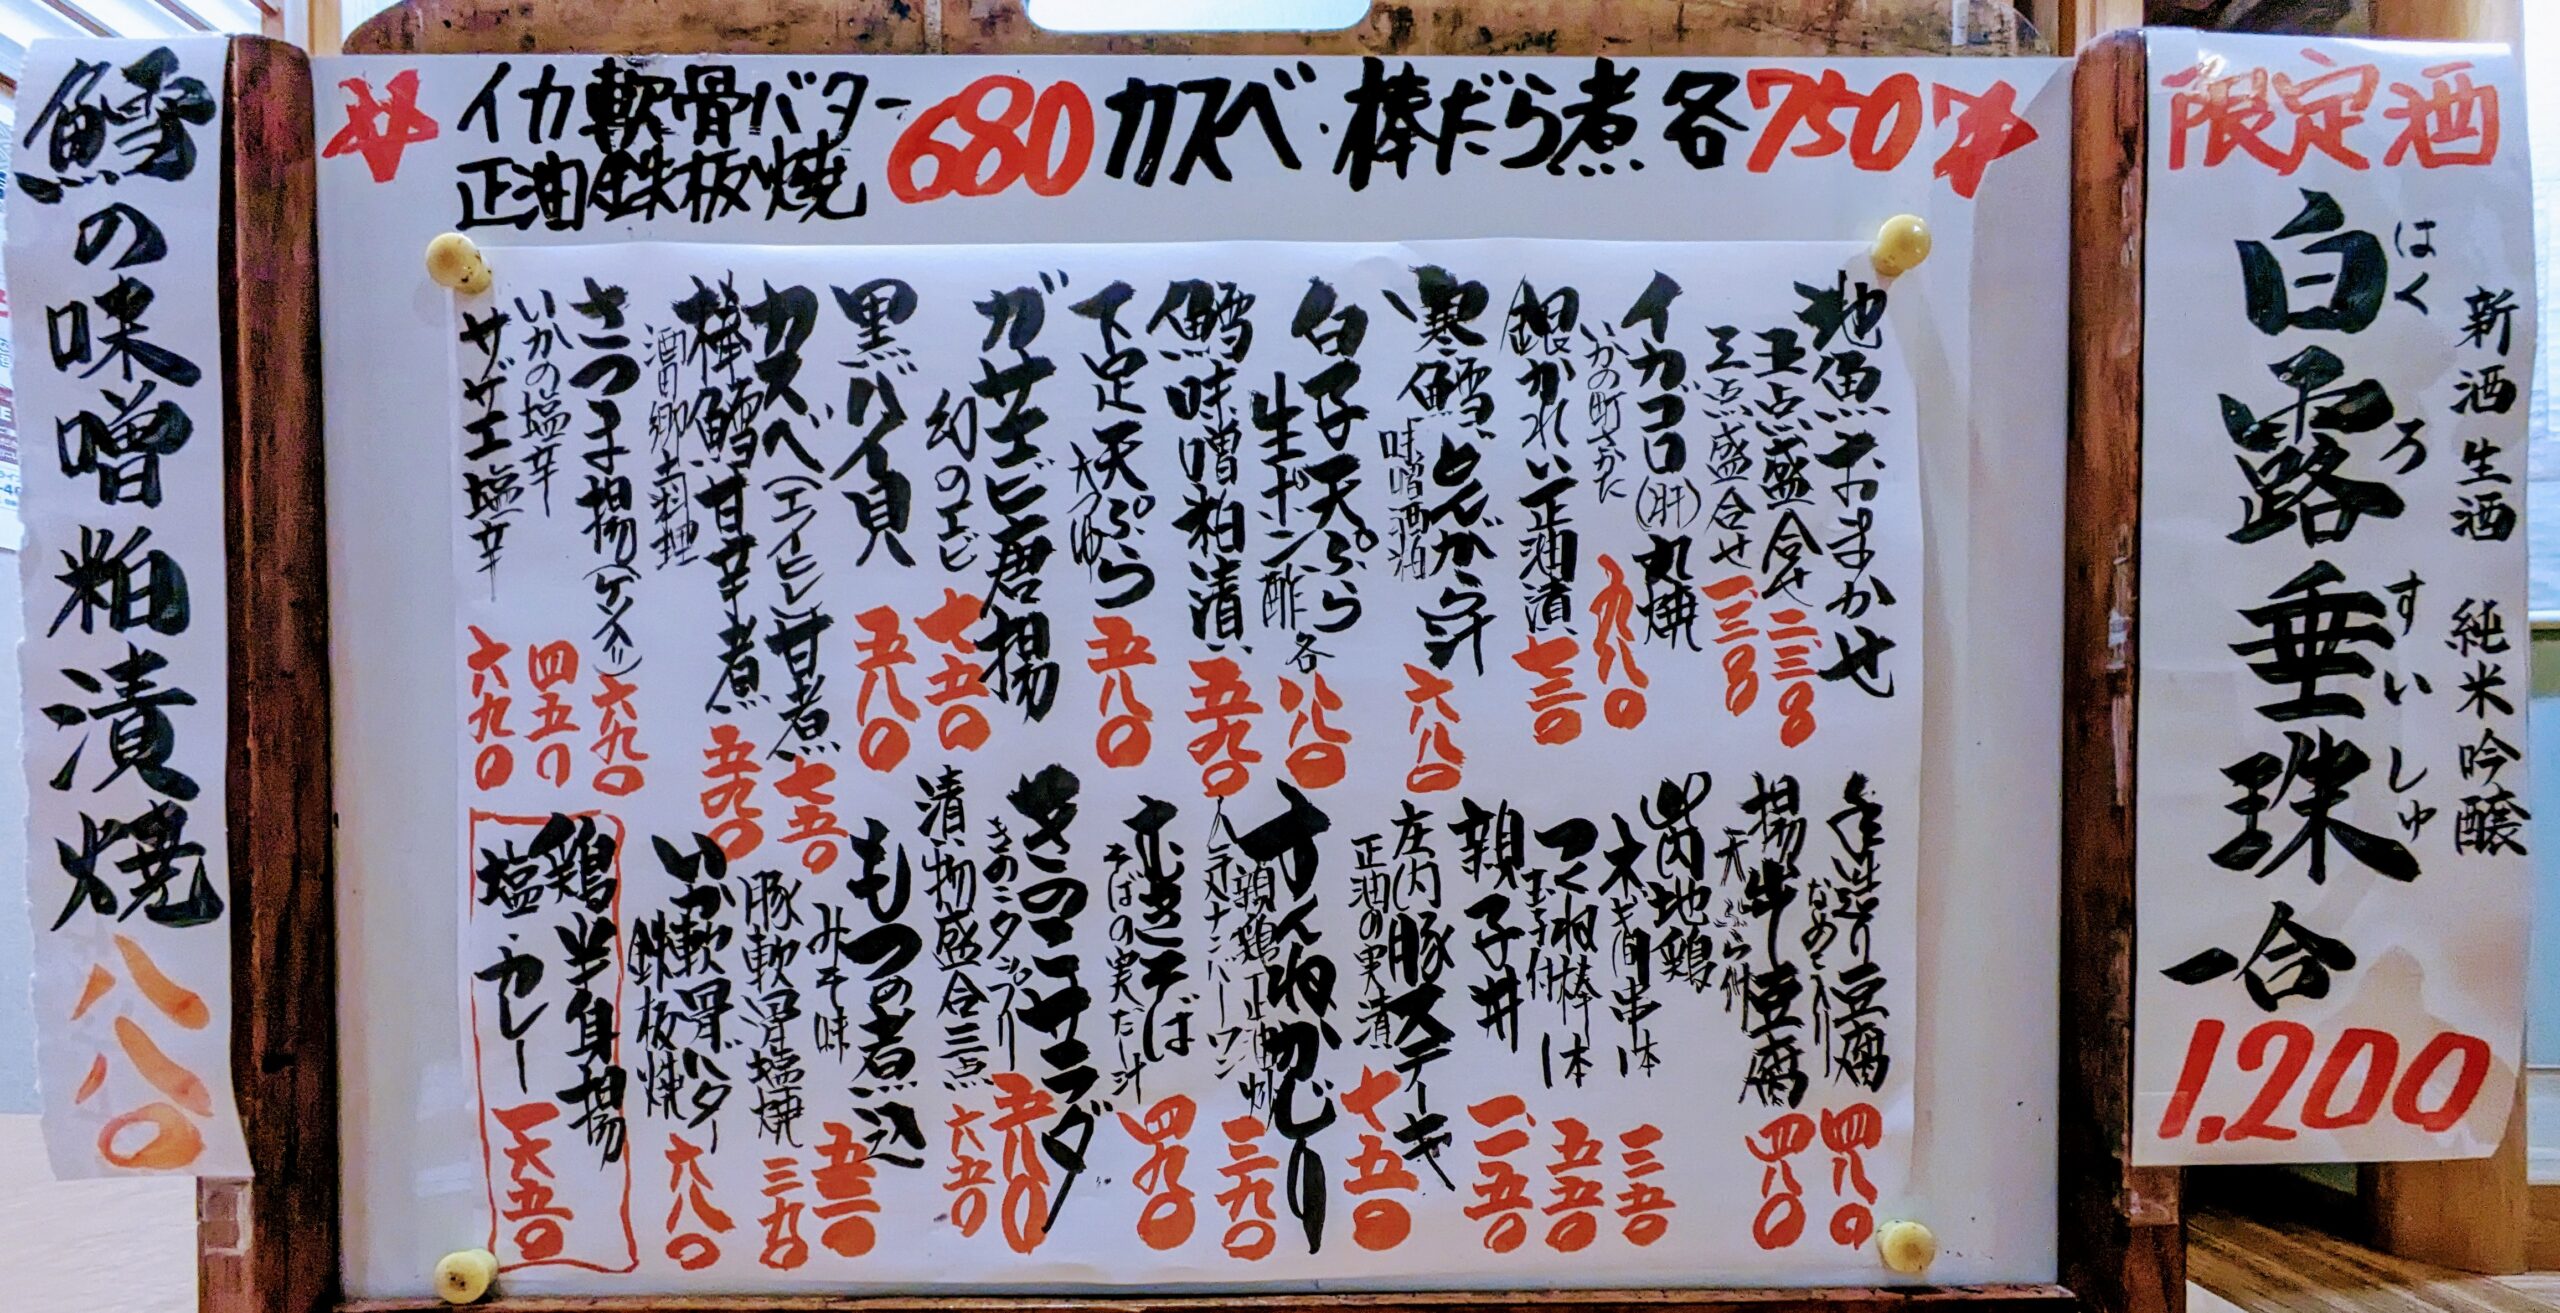 イカ軟骨バター
正油鉄板焼
680
カスベ・棒だら煮 各750
限定酒
新酒生酒 純米吟醸
白露垂珠
はくろすいしゅ
一合
1.200
地魚おまかせ
五点盛合せ 二.三〇〇
三点盛合せ 一.三〇〇
イカゴロ(肝)丸焼
いかの町さかた 九八〇
銀かれい正油漬 七三〇
寒鱈どんがら汁
味噌酒粕 六八〇
白子天ぷら
生ポン酢 各 八八〇
鱈味噌粕漬 五九〇
下足天ぷら
天つゆ 五八〇
ガサエビ唐揚
幻のエビ 七五〇
黒バイ貝 五八〇
カスベ(エイヒレ)甘煮 七五〇
棒鱈甘辛煮
酒田郷土料理 五九〇
さつま揚(ゲソ入リ) 六九〇
いかの塩辛 四五〇
サザエ塩辛 六九〇
手造り豆腐
なめこ入り 四八〇
揚牛豆腐
天ぷら付 四八〇
庄内地鶏
ネギ間串一本 三五〇
つくね棒一本
玉子付 五五〇
親子丼 一.一五〇
庄内豚ステーキ
正油の実漬 七五〇
すんねかじり
親鶏正油炒
人気ナンバーワン 三九〇
むきそば
そばの実だし汁 四九〇
きのこサラダ
きのこタップリ 五八〇
漬物盛合三点 六五〇
もつの煮込
みそ味 五三〇
豚軟骨塩焼 三九〇
いか軟骨バター
鉄板焼 六八〇
鶏半身揚
塩・カレー 一六五〇
鱈の味噌粕漬焼 八八〇